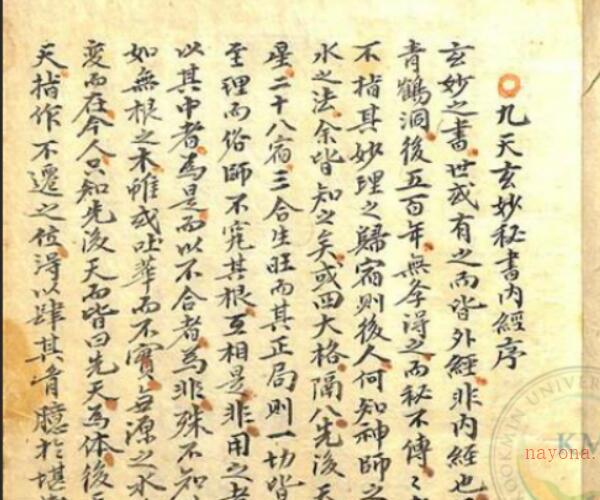 九天玄妙秘書內經序
玄妙之書世或有之而皆外經非內經也
青鶴洞後五百年無条得之而秘不傳
不指其妙理之歸宿則後人何知神師之
水之法余皆知之矣或四大格隔八先後天
星二十八宿三合生旺而其正局則一切皆
至理而俗師不究其根互相是非用之者
以其中者為是而以不合者為非殊不知
如無根之木雖或吐華而不實無源之水
變而在今人只知先後天而皆曰先天為体後
天指作不遷之位得以肆其胷臆於堪
OOKMIN UNIVER
KM
nayona.